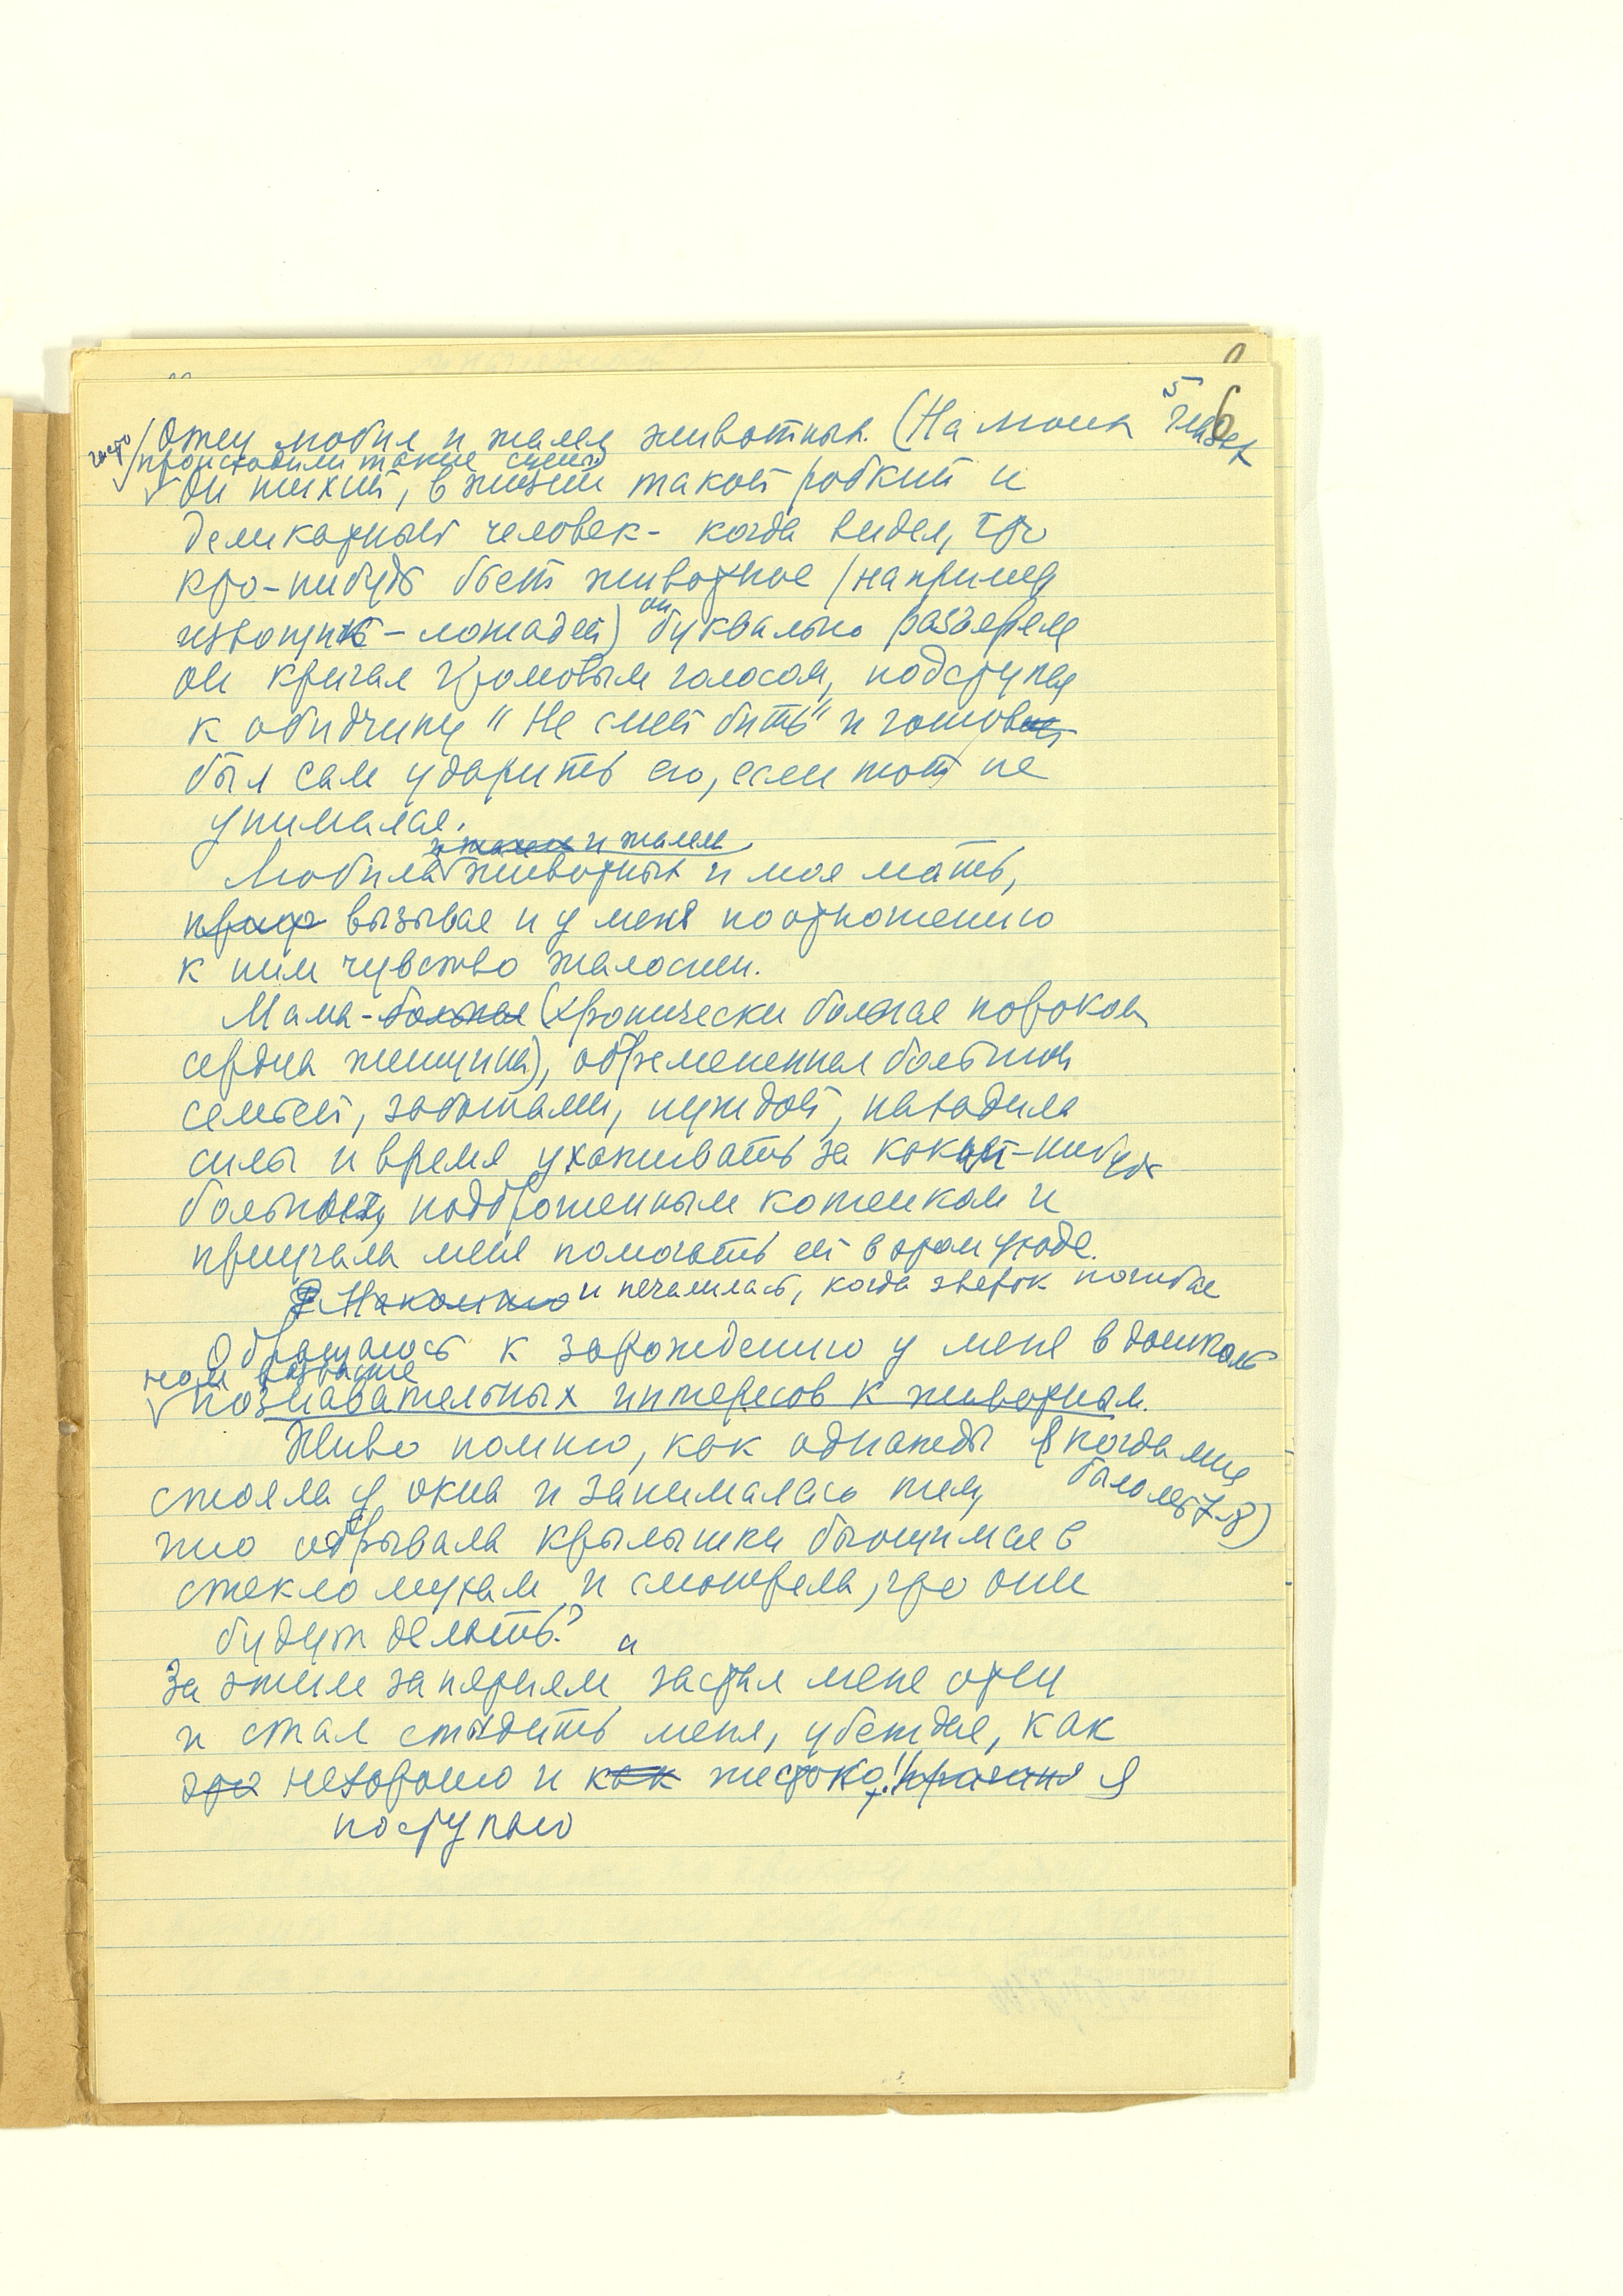 5
6
Отец любил и жалел животных. (На моих глазах
часто происходили такие сцены)
Он тихий, в жизни такой робкий и
деликатный человек - когда видел, что
кто-нибудь бьет животное (например
извощик - лошадей) он буквально разъярен
он кричал громовым голосом, подступая
к обидчику "Не смей бить" и готов
был сам ударить его, если тот не
унимался.
и жалела
Любила животных и моя мать,
вызывая и у меня по отношению
к ним чувство жалости.
Мама - больная (хронически больная пороком
сердца женщина), обремененная большой
семьей, заботами, нуждой, находила
силы и время ухаживать за каким-нибудь
больным, подброшенным котенком и
приучала меня помогать ей в этом уходе.
и печалилась, когда зверок погибал
Обращаюсь к зарождению у меня в дошколь
ном возрасте
познавательных интересов к животным.
Живо помню, как однажды я (когда мне
было лет 7-8)
стояла у окна и занималась тем,
что обрывала крылышки бьющимся в
стекло мухам и смотрела, что они
будут делать?
За этим занятием застал меня отец
и стал стыдить меня, убеждая, как
это нехорошо и как жестоко я
поступаю